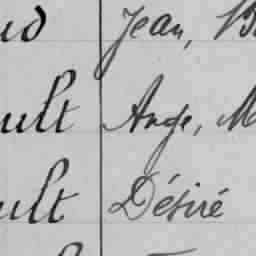 Jean,
ult Ange, M
ult Désiré